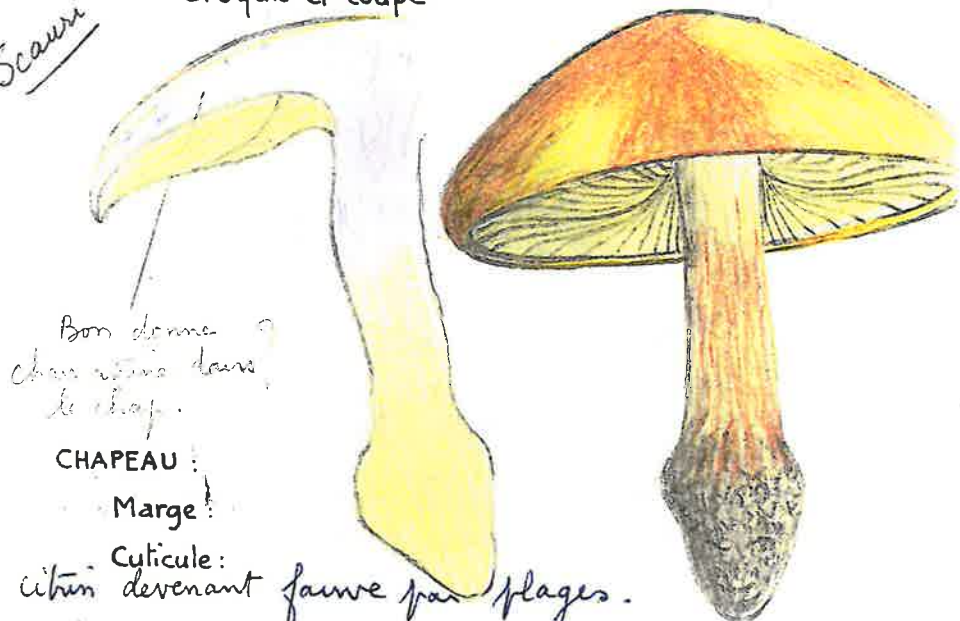 Croquis et coupe
Scauri
Bon donne
dans
le chap.
CHAPEAU :
Marge :
Cuticule :
citrin devenant fauve par plages.